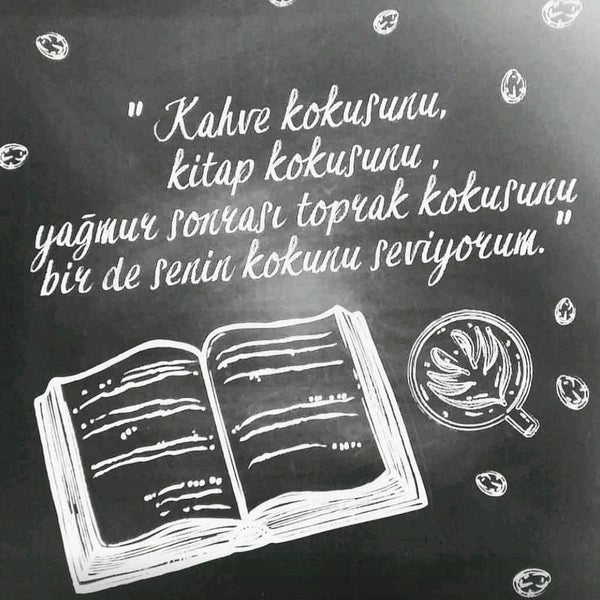 " Kahve kokusunu,
kitap kokusunu ,
yağmur sonrası toprak kokusunu
bir de senin kokunu seviyorum. "